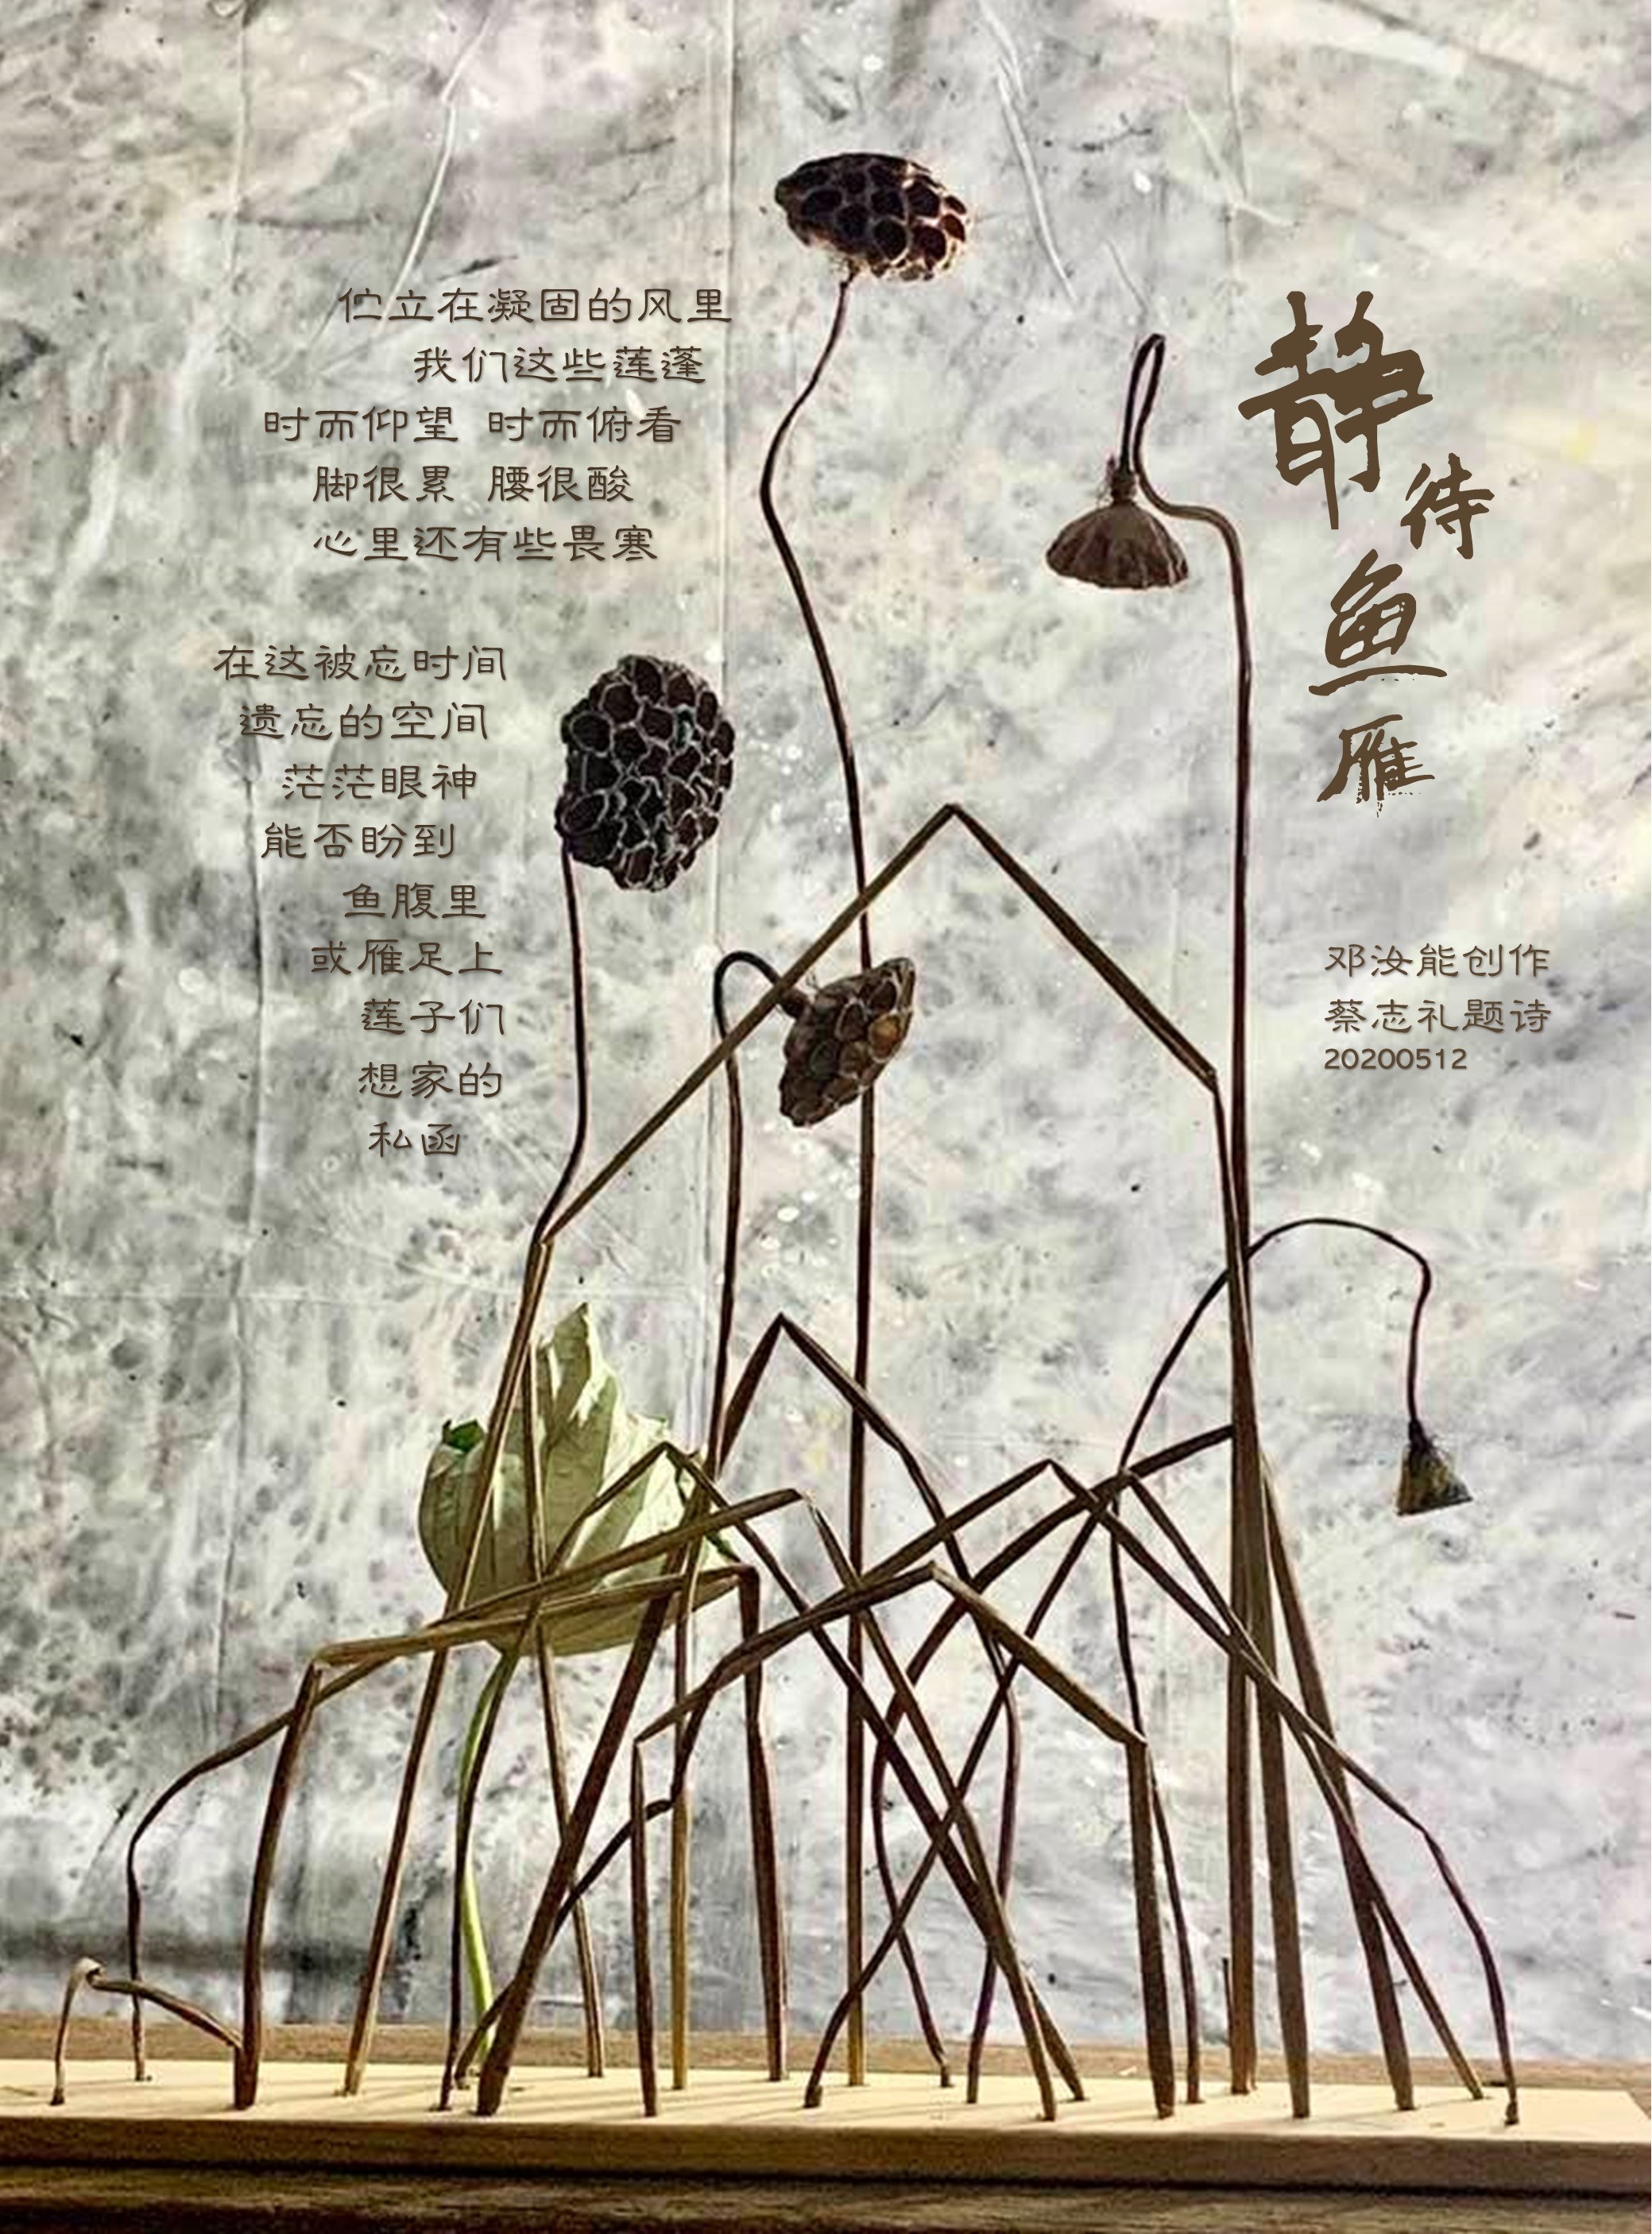 静待鱼雁
伫立在凝固的风里
我们这些莲蓬
时而仰望 时而俯看
脚很累 腰很酸
心里还有些畏寒
在这被忘时间
遗忘的空间
茫茫眼神
能否盼到
鱼腹里
或雁足上
莲子们
想家的
私函
邓汝能创作
蔡志礼题诗
20200512